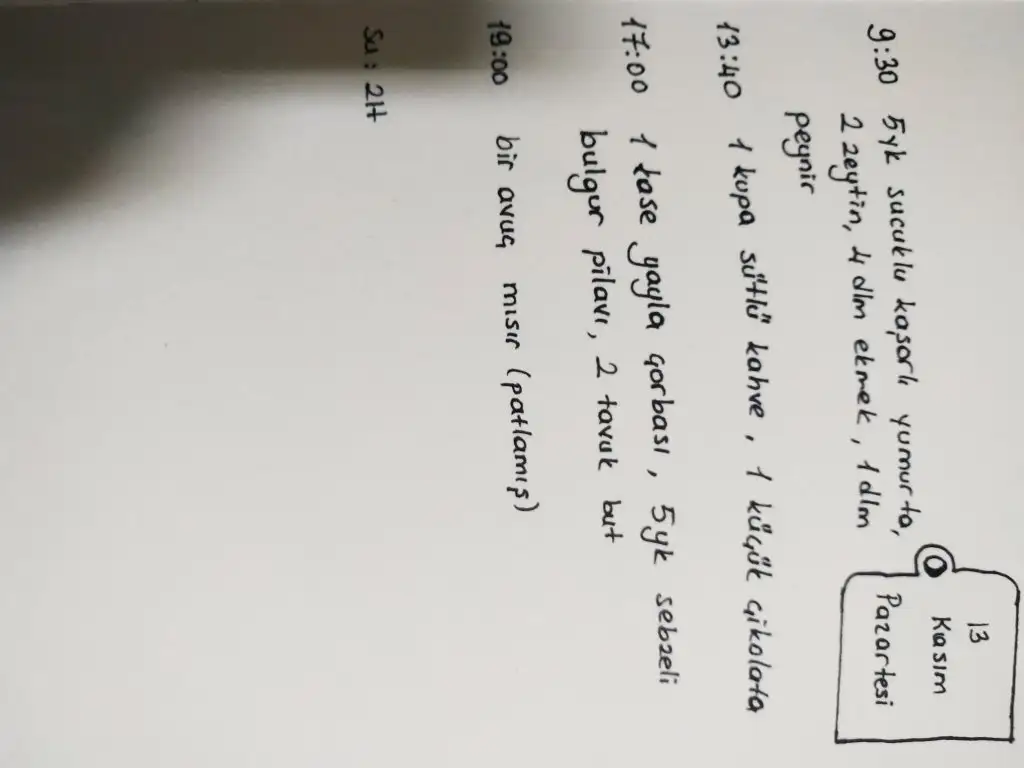 13
Kasım
Pazartesi
9:30 5yk sucuklu kaşarlı yumurta,
2 zeytin, 4 dlm ekmek, 1 dlm
peynir
13:40 1 kupa sütlü kahve, 1 küçük çikolata
17:00 1 kase yayla çorbası, 5yk sebzeli
bulgur pilavı, 2 tavuk but
19:00 bir avuç mısır (patlamış)
Su: 2lt